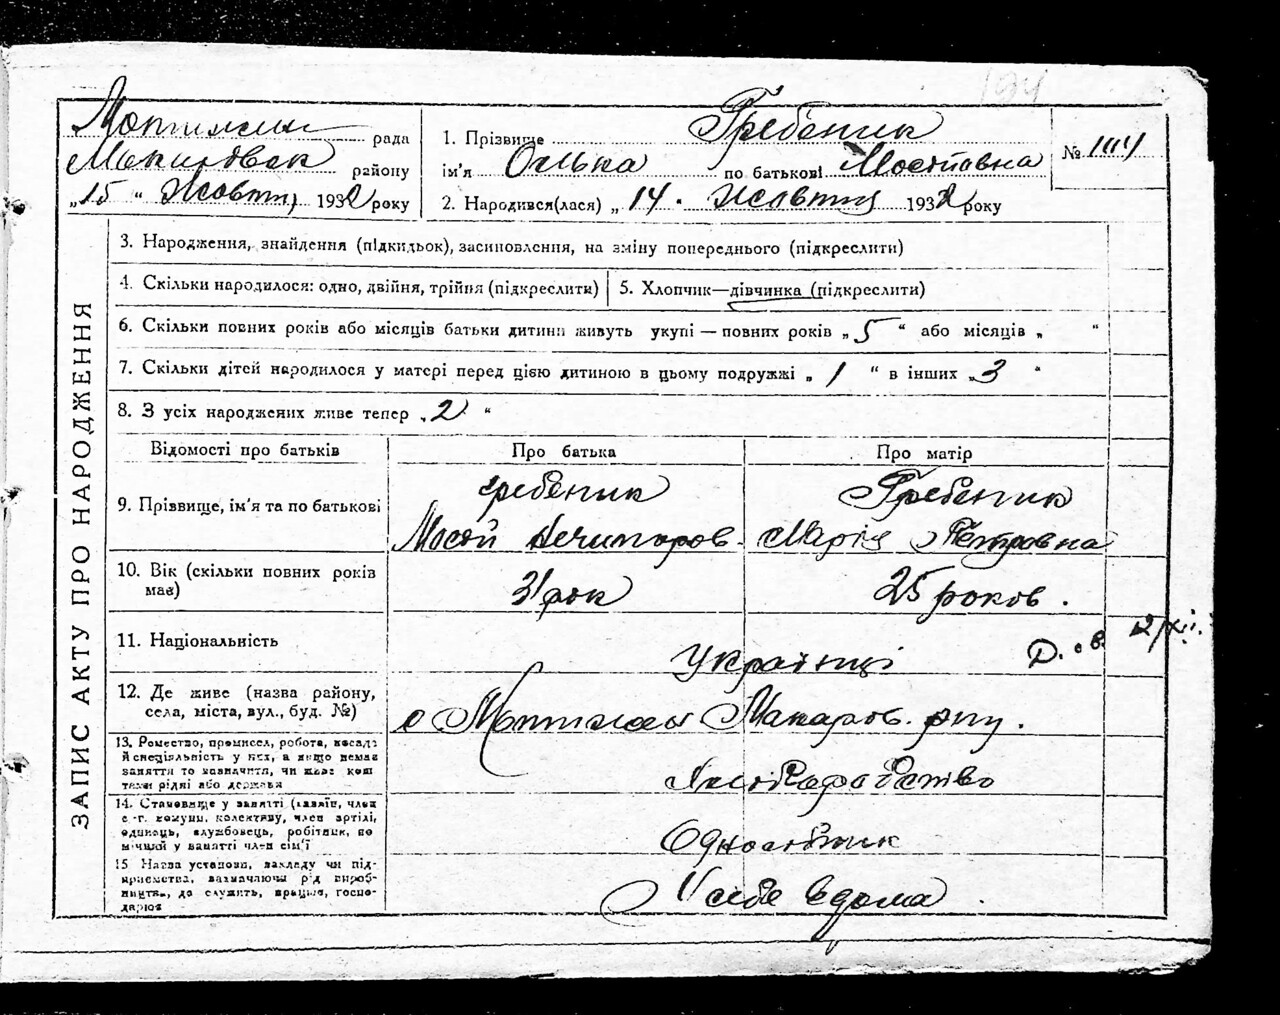 194
Мотижин рада
Макарівськ району
„15“ Жовтн, 1932 року
1. Прізвище Гребеник
ім'я Олька по батькові Мосіївна
2. Народився(лася) „14. Жовтня 1932 року
№ 104
ЗАПИС АКТУ ПРО НАРОДЖЕННЯ
3. Народження, знайдення (підкидьок), засиновлення, на зміну попереднього (підкреслити)
4. Скільки народилося: одно, двійня, трійня (підкреслити)
5. Хлопчик—дівчинка (підкреслити)
6. Скільки повних років або місяців батьки дитини живуть укупі — повних років „5“ або місяців „ “
7. Скільки дітей народилося у матері перед цією дитиною в цьому подружжі „1“ в інших „3“
8. З усіх народжених живе тепер „2“
Відомості про батьків
Про батька
Про матір
9. Прізвище, ім'я та по батькові
гребеник
Мосій Нечипоров.
Гребеник
Марія Петровна
10. Вік (скільки повних років
має)
31 рок
25 років.
11. Національність
Українці
12. Де живе (назва району,
села, міста, вул., буд. №)
с Мотижин Макаров. рну.
13. Ремество, промисел, робота, посада
й спеціяльність у них, а якщо немає
заняття то зазначити, чи живе кош
тами рідні або держави
Хліборобство
14. Становище у занятті (хазяїн, член
с.-г. комуни, колективу, член артілі,
одинець, службовець, робітник, по
мічний у занятті член сім'ї
Одноосібник
15 Назва установи, закладу чи під-
приємства, зазначаючи рід вироб-
ництва, де служить, працює, госпо-
дарює
У себе вдома.